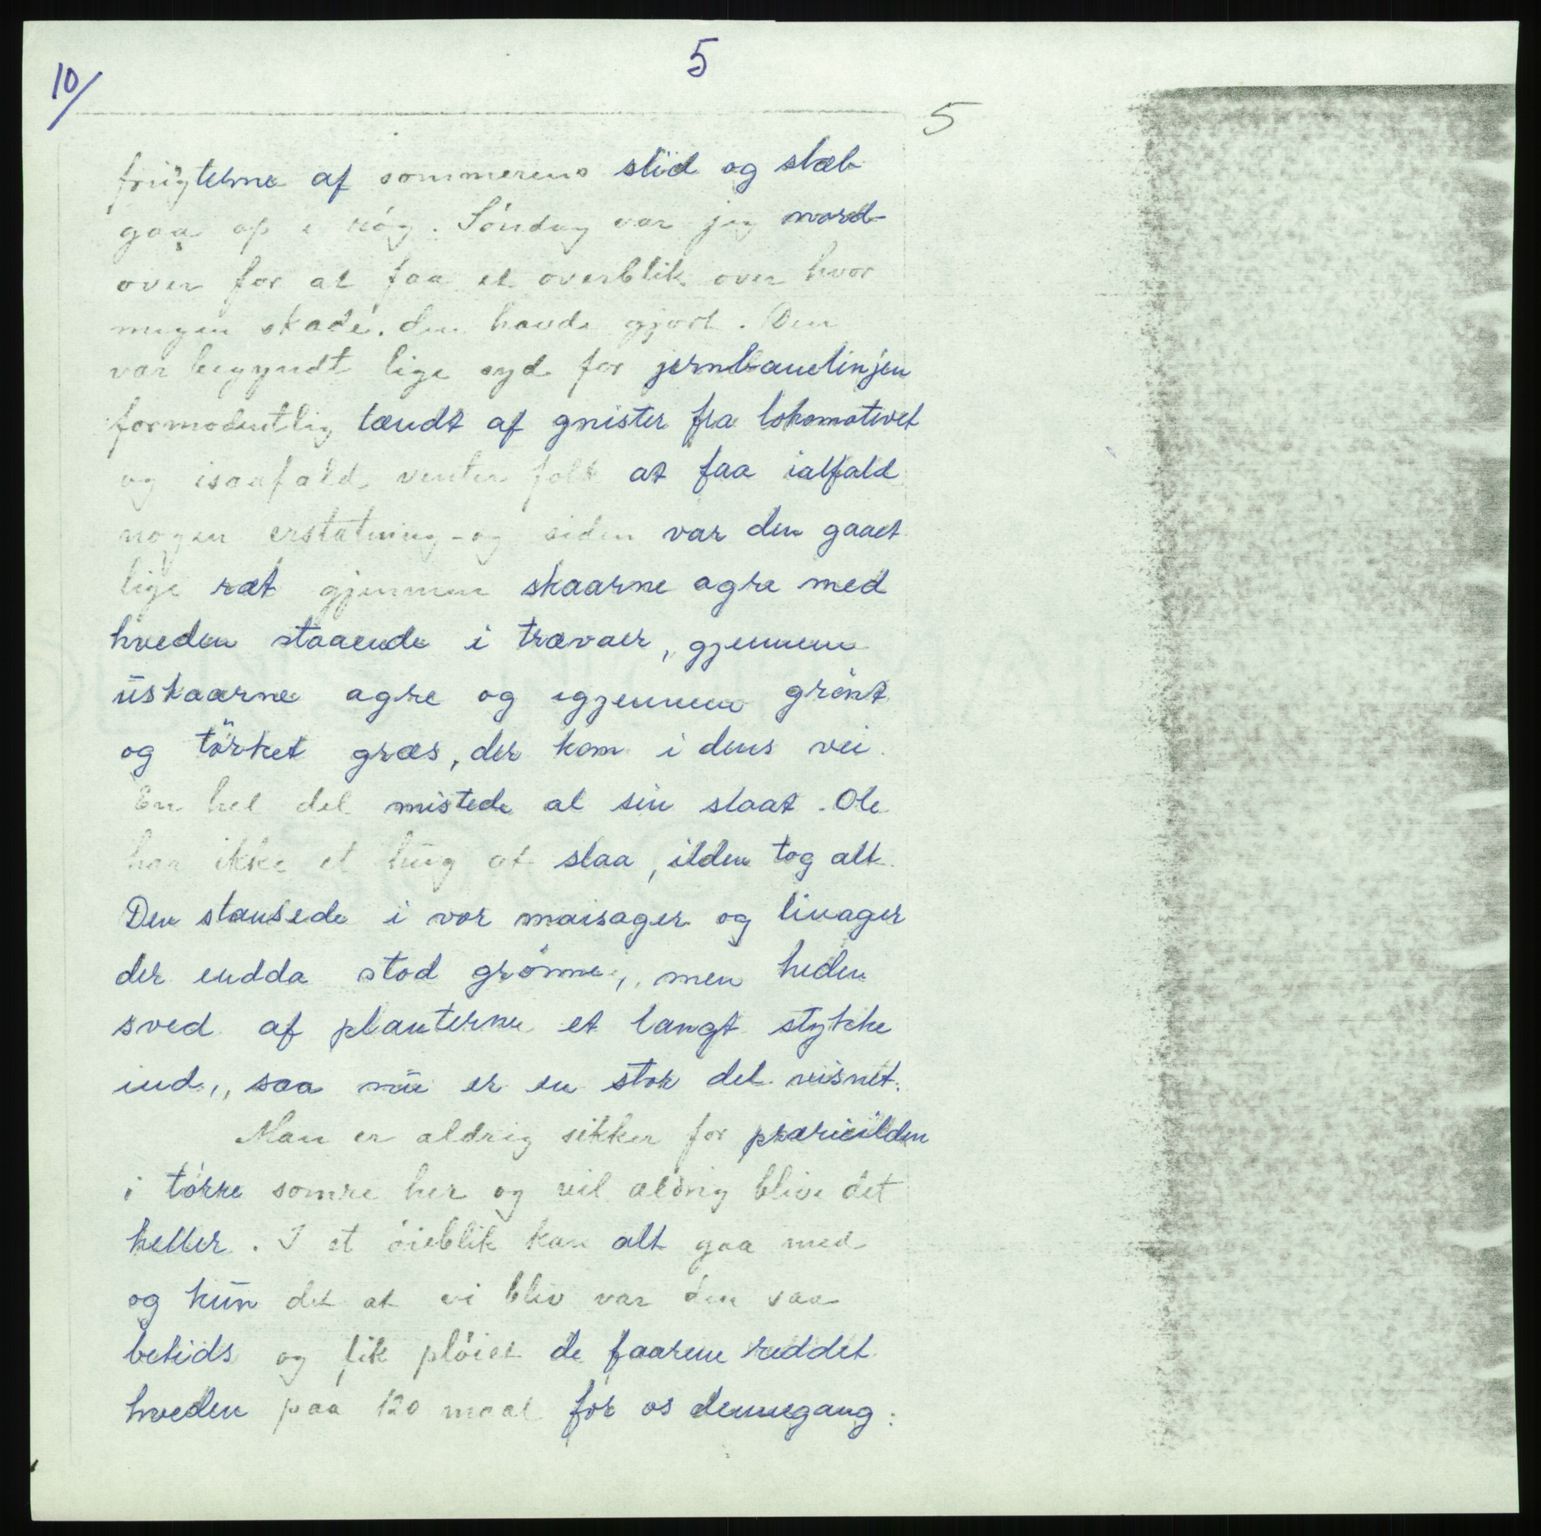 10/
5
5
frügterne af sommerens slid og slæb
gaa op i røg. Søndag var jeg nord-
over for at faa et overblik over hvor
megen skade den havde gjort. Den
var begyndt lige syd for jernbanelinjen
formodentlig tændt af gnister fra lokomotivet
og isaafald venter folk at faa ialfald
nogen erstatning - og siden var den gaaet
lige ræt gjennem skaarne agre med
hveden staaende i trævaer, gjennem
üskaarne agre og igjennem grønt
og tørket græs, der kom i dens vei.
En hel del mistede al sin slaat. Ole
har ikke et hüg at slaa, ilden tog alt.
Den stansede i vor maisager og linager
der endda stod grønne, men heden
sved af planterne et langt stykke
ind, saa nü er en stor del visnet.
Man er aldrig sikker for prærieilden
i tørre somre her og vil aldrig blive det
heller. I et øieblik kan alt gaa med
og kün det at vi blev var den saa
betids og fik pløiet de faarene reddet
hveden paa 120 maal for os dennegang.